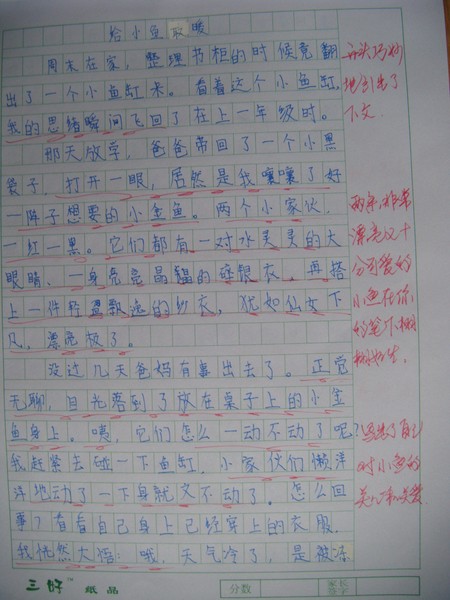 给小鱼取暖
周末在家，整理书柜的时候竟翻
出了一个小鱼缸来。看着这个小鱼缸，
我的思绪瞬间飞回了在上一年级时。
那天放学，爸爸带回了一个小黑
袋子，打开一眼，居然是我嚷嚷了好
一阵子想要的小金鱼。两个小家伙，
一红一黑。它们都有一对水灵灵的大
眼睛，一身亮亮晶晶的银衣，再搭
上一件轻盈飘逸的纱衣，犹如仙女下
凡，漂亮极了。
没过几天爸妈有事出去了。正觉
无聊，目光落到了放在桌子上的小金
鱼身上。咦，它们怎么一动不动了呢？
我赶紧去碰一下鱼缸，小家伙们懒洋
洋地动了一下身就又不动了。怎么回
事？看看自己身上已经穿上的衣服，
我恍然大悟：哦，天气冷了，是被冻
开头巧妙
地引出了
下文
两条非常
漂亮又十
分可爱的
小鱼在你
的笔下栩
栩如生。
写出了自己
对小鱼的
关心和喜爱
三好 纸品
分数
家长
签字